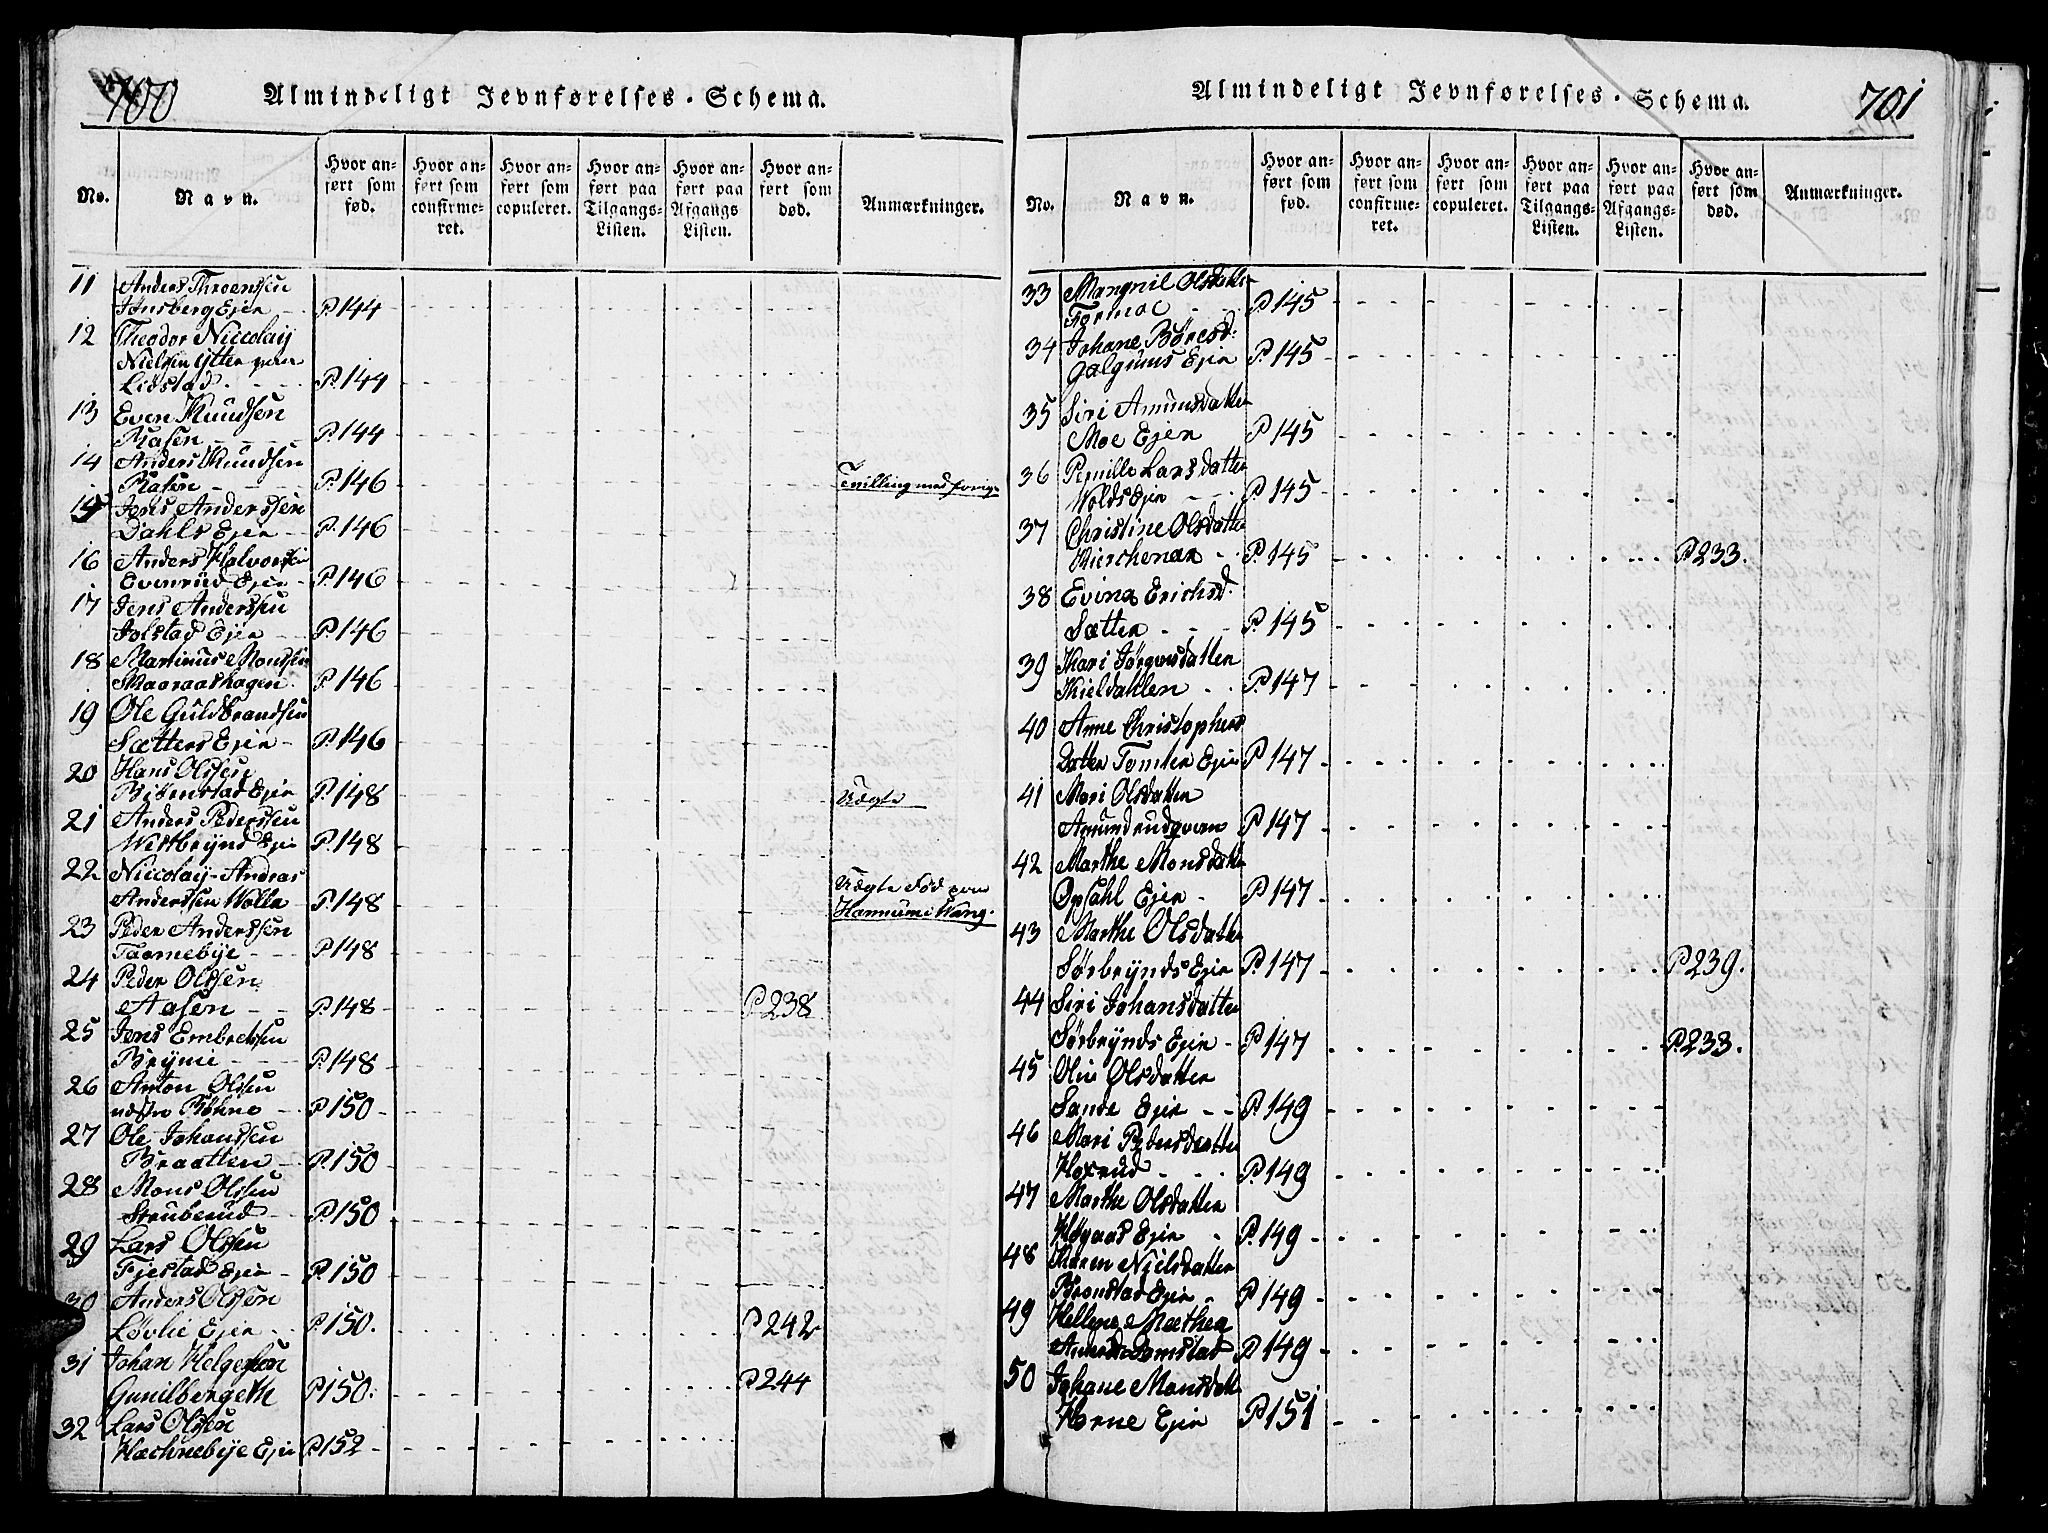 700
Almindeligt Jevnførelses-Schema.
No. Navn. Hvor anført som fød. Hvor anført som confirmeret. Hvor anført som copuleret. Hvor anført paa Tilgangs-Listen. Hvor anført paa Afgangs Listen. Hvor anført som død. Anmærkninger.
11 Anders Throenssen
Jønsberg Ejer P.144
12 Theodor Niccolaÿ
Nielsen Ytter
Lidstad P.144
13 Even Knudsen
Rasen P.144
14 Anders Knudsen
Rasen P.146 Tvilling med forrige
15 Jens Anderssen
Dahls Ejer P.146
16 Anders Halvorsen
Evenrud Ejer P.146
17 Jens Anderssen
Jolstad Ejer P.146
18 Martinus Monssen
Skaaraashagen P.146
19 Ole Guldbrandsen
Sætters Ejer P.146
20 Hans Olssen
Ejer P.148 Uægte
21 Anders Pederssen
Westbrÿnd Ejer P.148
22 Niccolaÿ Andreas
Anderssen Wolle P.148 Uægte Fød
Wang.
23 Peder Anderssen
Taarnebÿe P.148
24 Peder Olssen
Aasen P.148 P.238
25 Jens Embretssen
Brÿnie P.148
26 Anton Olssen
Bøhne P.150
27 Ole Johanssen
Braatten P.150
28 Mons Olssen
Struberud P.150
29 Lars Olssen
Fjestad Ejer P.150
30 Anders Olssen
Løvlie Ejer P.150. P.242
31 Johan Helgessen
Gunilbergeth P.150. P.244
32 Lars Olssen
Hæchnebÿe Ejer P.152
701
Almindeligt Jevnførelses-Schema.
No. Navn. Hvor anført som fød. Hvor anført som confirmeret. Hvor anført som copuleret. Hvor anført paa Tilgangs-Listen. Hvor anført paa Afgangs-Listen. Hvor anført som død. Anmærkninger.
33 Mangnil Olsdatter
Formoe P.145
34 Johane Børesd:
Galguns Ejer P.145
35 Siri Amunsdatter
Moe Ejer P.145
36 Pernille Larsdatter
Wolds Ejer P.145
37 Christine Olsdatter
Kirchenær P.145 P.233.
38 Evina Erichsd.
Sætter P.145
39 Kari Jørgensdatter
Kieldahlen P.147
40 Anne Christophers
Datter Tomter Ejer P.147
41 Mari Olsdatter
Amundrud P.147
42 Marthe Monsdatter
Opsahl Ejer P.147
43 Marthe Olsdatter
Sørbrÿnds Ejer P.147 P.239.
44 Siri Johansdatter
Sørbrÿnds Ejer P.147 P.233.
45 Olia Olsdatter
Sande Ejer P.149
46 Mari Pedersdatter
Hoxrud P.149
47 Marthe Olsdatter
Høgaas Ejer P.149
48 Karen Nielsdatter
Bronstad Ejer P.149
49 Hellene Mathea
P.149
50 Johane Monsdatt
Horne Ejer P.151